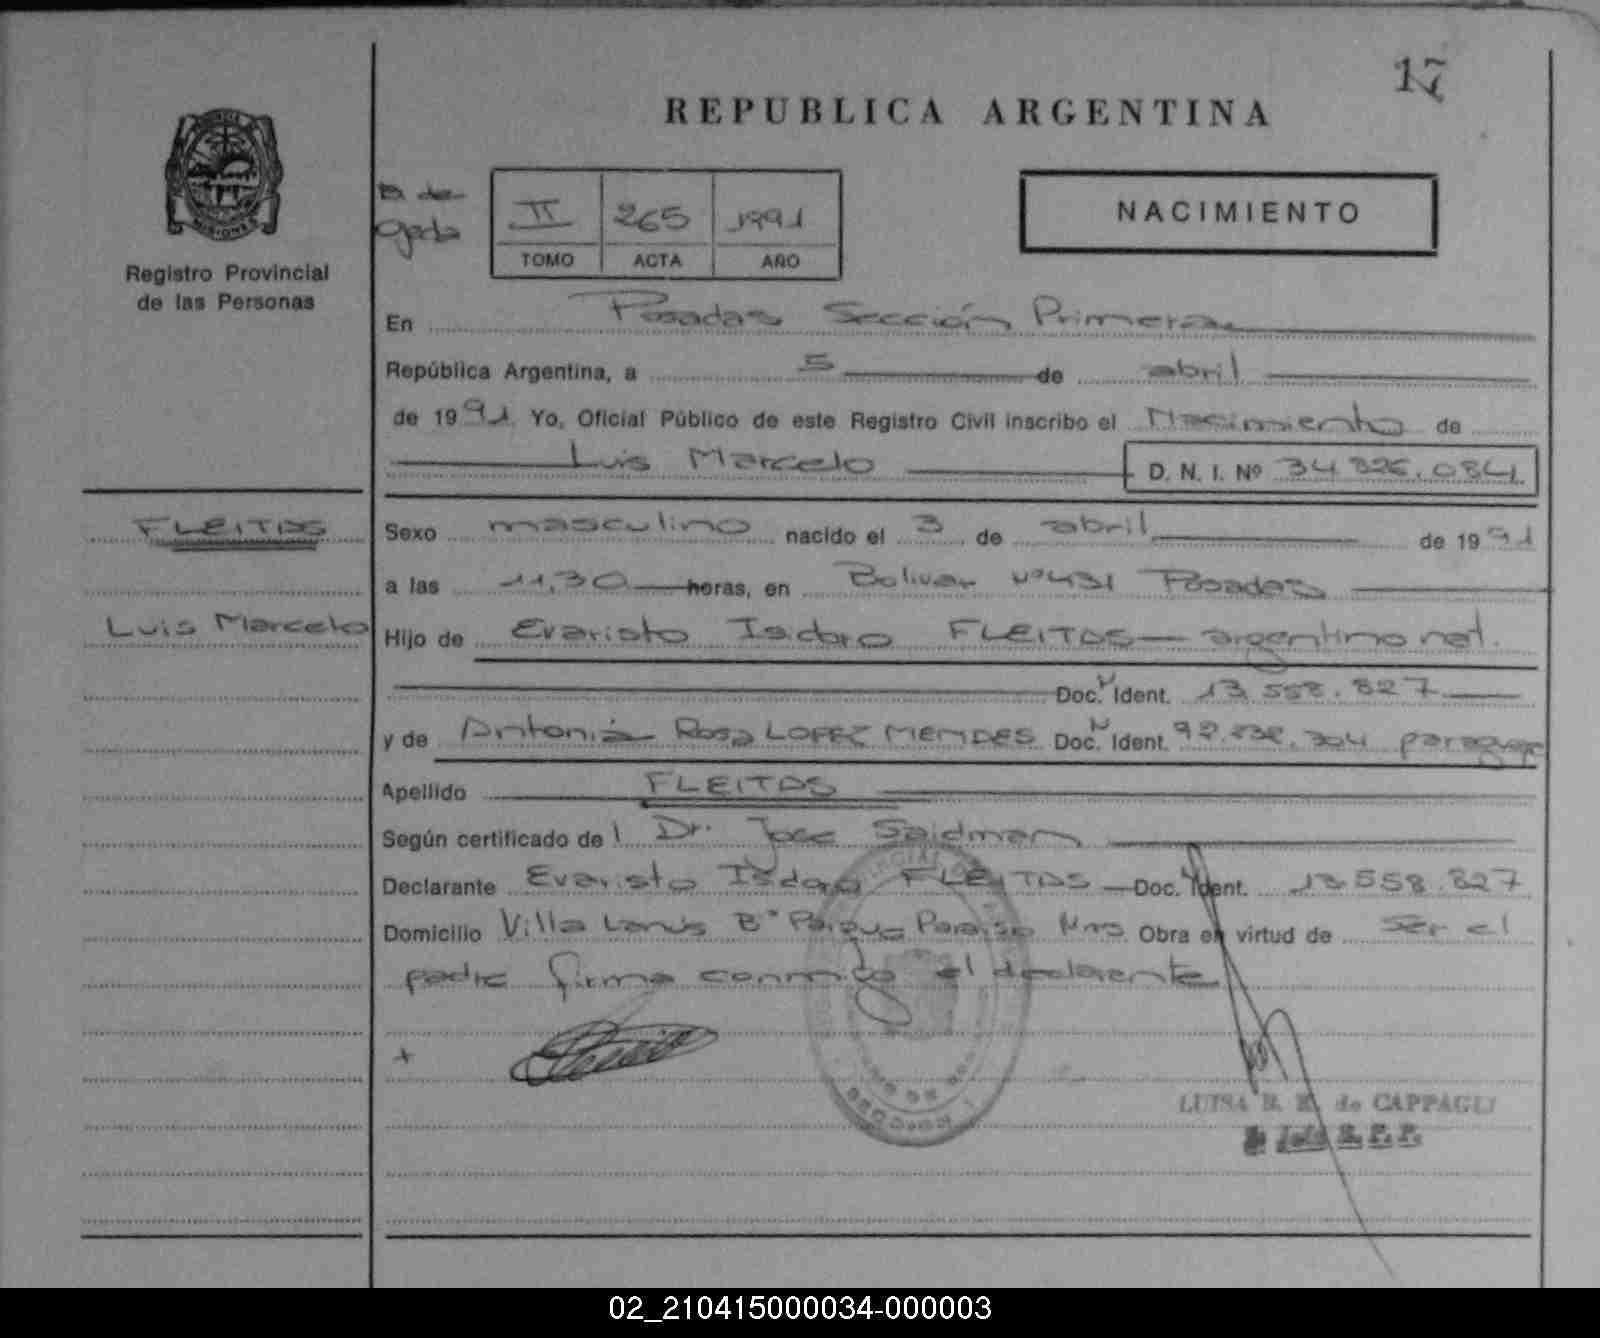 17
REPUBLICA ARGENTINA
NACIMIENTO
II 265 1991
TOMO ACTA AÑO
MISIONES
Registro Provincial
de las Personas
En Posadas Sección Primera
República Argentina, a 5 de abril
de 1991 Yo, Oficial Público de este Registro Civil inscribo el Nacimiento de
Luis Marcelo D. N. I. Nº 34.826.084
FLEITAS
Luis Marcelo
Sexo masculino nacido el 3 de abril de 1991
a las 11,30 horas, en Bolivar Nº 431 Posadas
Hijo de Evaristo Isidoro FLEITAS argentino nat.
Doc. Ident. 13.558.827
y de Antonia Rosa LOPEZ MENDES Doc. Ident. 92.232.304
Apellido FLEITAS
Según certificado de l Dr. Jose Saidman
Declarante Evaristo Isidoro FLEITAS Doc. Ident. 13.558.827
Domicilio Villa Lanús Bº Parque Paraiso Mns Obra en virtud de ser el
padre firma conmigo el declarante
SECCION 1
LUISA B. K. de CAPPAGLI
02_210415000034-000003